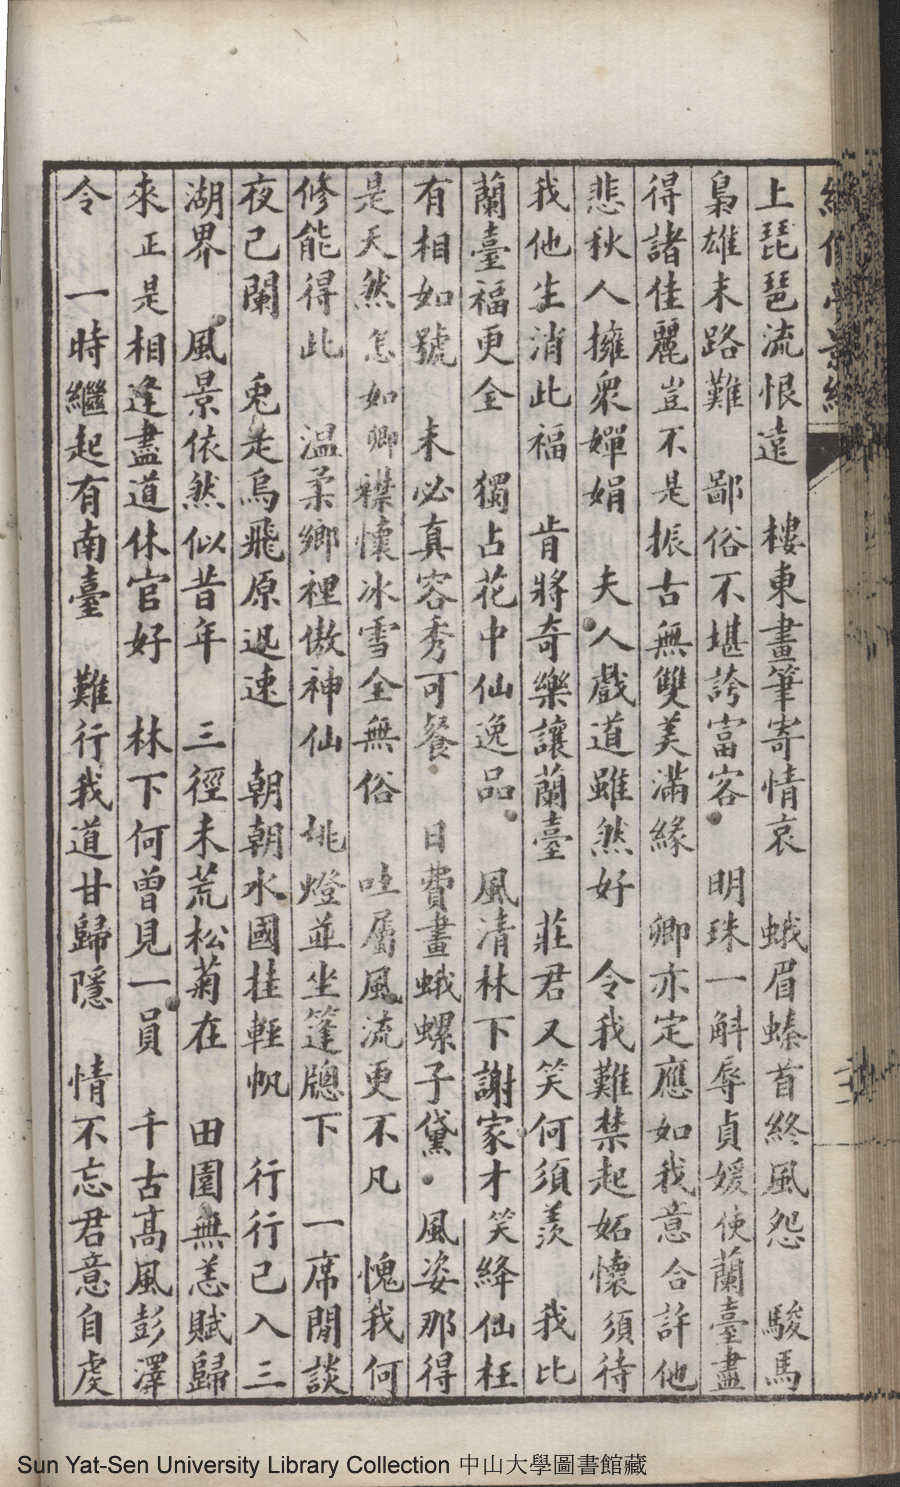 上琵琶流恨遠　樓東畫筆寄情哀　蛾眉螓首終風怨　駿馬
梟雄末路難　鄙俗不堪誇富客　明珠一斛辱貞媛使蘭臺盡
得諸佳麗豈不是振古無雙美滿緣　卿亦定應如我意合許他
悲秋人擁衆嬋娟　夫人戲道雖然好　令我難禁起妬懷須待
我他生消此福　肯將奇樂讓蘭臺　莊君又笑何須羨　我比
蘭臺福更全　獨占花中仙逸品　風清林下謝家才笑絳仙枉
有相如號　未必真容秀可餐　日費畫蛾螺子黛　風姿那得
是天然怎如卿襟懷冰雪全無俗　吐屬風流更不凡　愧我何
修能得此　温柔鄉裡傲神仙　挑燈並坐篷牕下　一席閒談
夜已闌　兎走烏飛原迅速　朝朝水國挂輕帆　行行已入三
湖界　風景依然似昔年　三徑未荒松菊在　田園無恙賦歸
來正是相逢盡道休官好　林下何曾見一員　千古髙風彭澤
令　一時繼起有南臺　難行我道甘歸隱　情不忘君意自虔
Sun Yat-Sen University Library Collection 中山大學圖書館藏